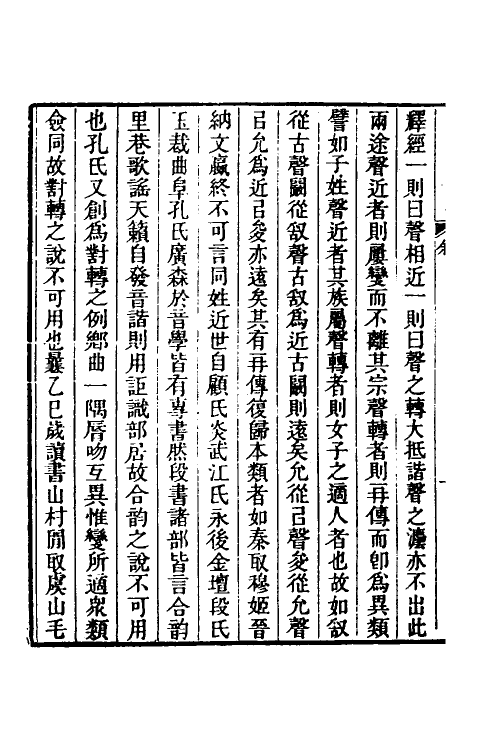 釋經一則曰聲相近一則曰聲之轉大抵諧聲之灋亦不出此
兩途聲近者則屢變而不離其宗聲轉者則再傳而卽爲異類
譬如子姓聲近者其族屬聲轉者則女子之適人者也故如㕡
從古聲闞從㕡聲古㕡爲近古闞則遠矣允從㠯聲夋從允聲
㠯允爲近㠯夋亦遠矣其有再傳復歸本類者如秦取穆姬晉
納文嬴終不可言同姓近世自顧氏炎武江氏永後金壇段氏
玉裁曲阜孔氏廣森於音學皆有專書然段書諸部皆言合韵
里巷歌謠天籟自發音諧則用詎識部居故合韵之說不可用
也孔氏又創爲對轉之例鄕曲一隅脣吻互異惟變所適衆類
僉同故對轉之說不可用也曩乙巳歲讀書山村閒取虞山毛